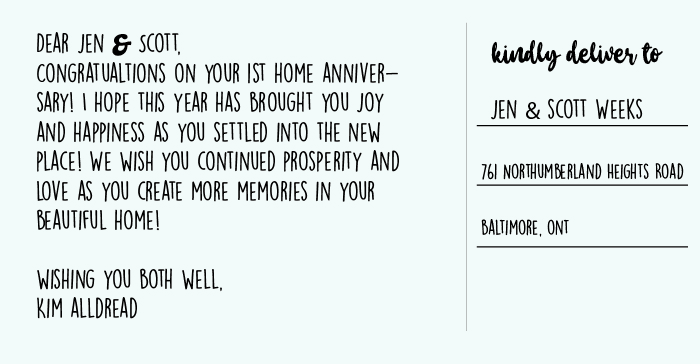 DEAR JEN & SCOTT,
CONGRATUALTIONS ON YOUR 1ST HOME ANNIVER-
SARY! I HOPE THIS YEAR HAS BROUGHT YOU JOY
AND HAPPINESS AS YOU SETTLED INTO THE NEW
PLACE! WE WISH YOU CONTINUED PROSPERITY AND
LOVE AS YOU CREATE MORE MEMORIES IN YOUR
BEAUTIFUL HOME!

WISHING YOU BOTH WELL,
KIM ALLDREAD

kindly deliver to
JEN & SCOTT WEEKS
761 NORTHUMBERLAND HEIGHTS ROAD
BALTIMORE, ONT